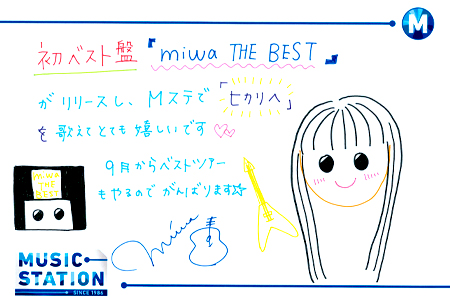 M
初ベスト盤『miwa THE BEST』
がリリースし、Mステで「ヒカリへ」
を歌えてとても嬉しいです♡♡
9月からベストツアー
もやるのでがんばります☆
miwa
THE
BEST
miwa
MUSIC
STATION
SINCE 1986